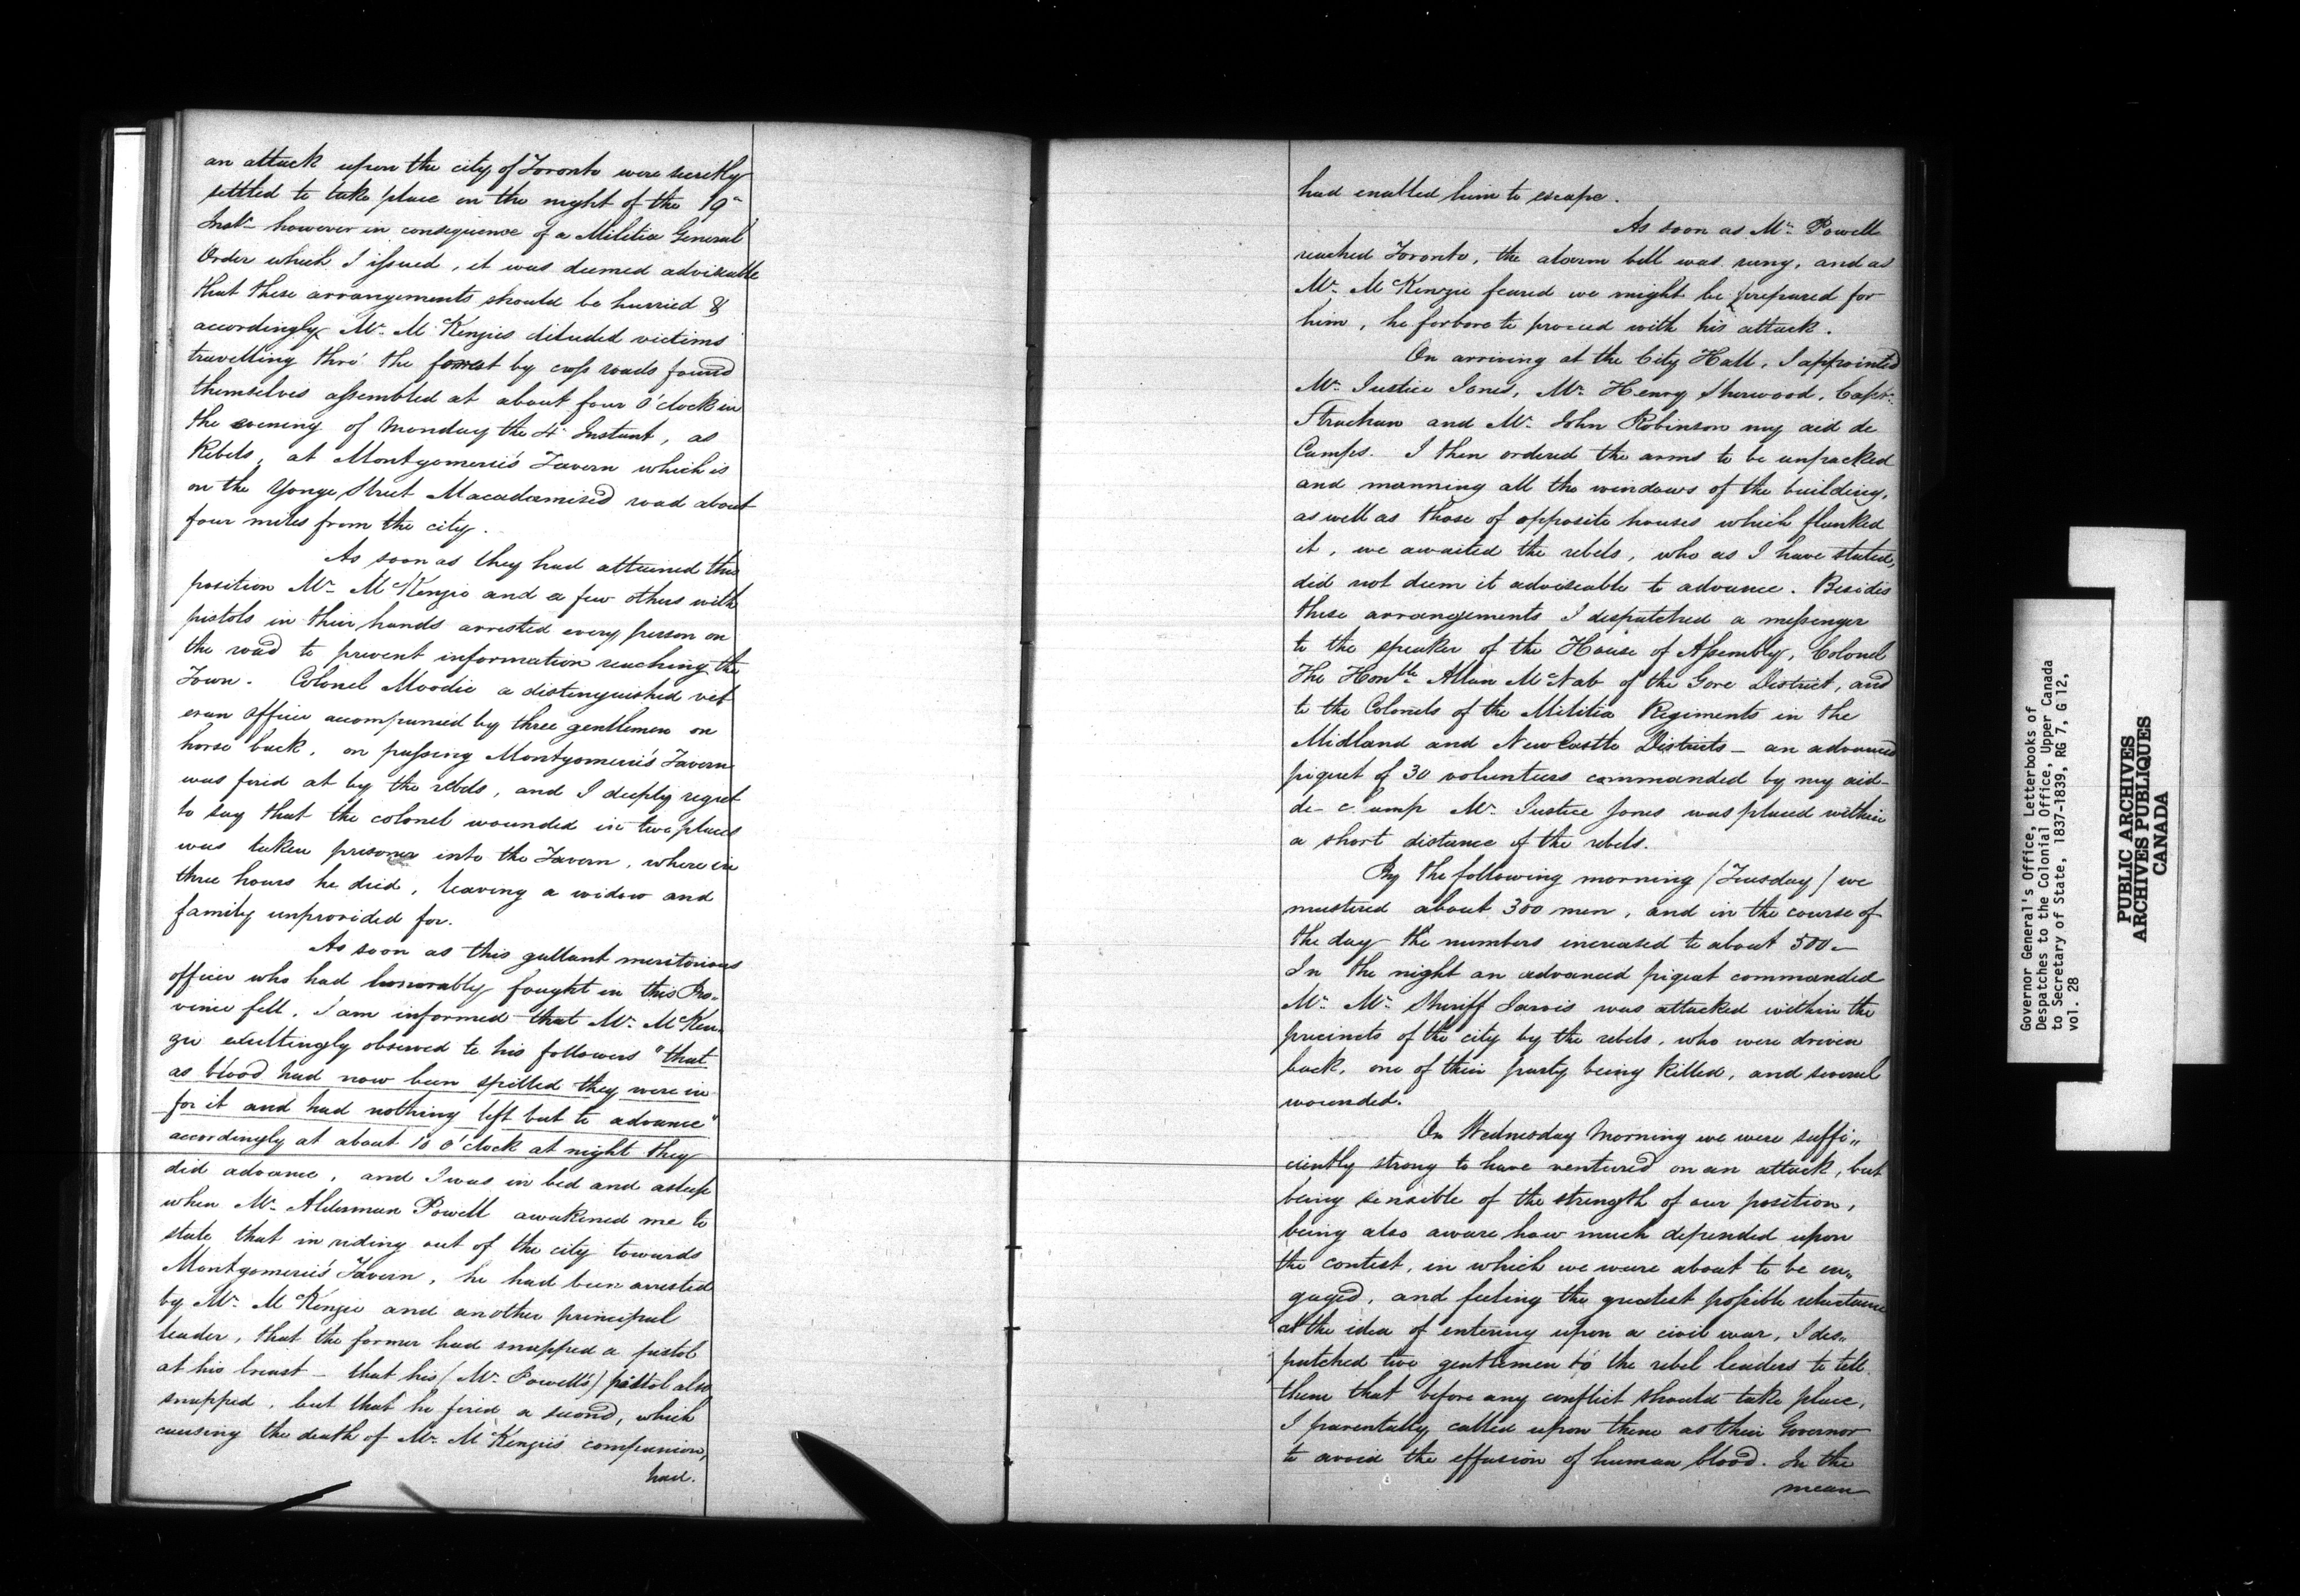 an attack upon the city of Toronto were secretly
settled to take place on the night of the 19th
Inst— however in consequence of a Militia General
Order which I issued, it was deemed adviseable
that these arrangements should be hurried &
accordingly Mr. McKenzies deluded victims
travelling thro' the forest by cross roads found
themselves assembled at about four o'clock in
the evening of Monday the 4th Instant, as
Rebels, at Montgomerie's Tavern which is
on the Yonge Street Macadamised road about
four miles from the city.
As soon as they had attained this
position Mr. McKenzie and a few others with
pistols in their hands arrested every person on
the road to prevent information reaching the
Town. Colonel Moodie a distinguished vet
eran officer accompanied by three gentlemen on
horse back, on passing Montgomerie's Tavern
was fired at by the rebels, and I deeply regret
to say that the colonel wounded in two places
was taken prisoner into the Tavern, where in
three hours he died, leaving a widow and
family unprovided for.
As soon as this gallant meritorious
officer who had honorably fought in this Pro„
vince fell, I am informed that Mr. McKen„
zie exultingly observed to his followers "that
as blood had now been spilled they were in
for it and had nothing left but to advance"
accordingly at about 10 o'clock at night they
did advance, and I was in bed and asleep
when Mr. Alderman Powell awakened me to
state that in riding out of the city towards
Montgomerie's Tavern, he had been arrested
by Mr. McKenzie and another principal
leader, that the former had snapped a pistol
at his breast – that his (Mr. Powell's) pistol also
snapped, but that he fired a second, which
causing the death of Mr. McKenzie's companion,
had.
had enabled him to escape.
As soon as Mr. Powell
reached Toronto, the alarm bell was rung, and as
Mr. McKenzie feared we might be prepared for
him, he forbore to proceed with his attack.
On arriving at the City Hall, I appointed
Mr. Justice Jones, Mr. Henry Sherwood, Captn.
Strachan and Mr. John Robinson my aid de
Camps. I then ordered the arms to be unpacked
and manning all the windows of the building,
as well as those of opposite houses which flanked
it, we awaited the rebels, who as I have stated,
did not deem it adviseable to advance. Besides
these arrangements I despatched a messenger
to the speaker of the House of Assembly, Colonel
The Honble Allan McNab of the Gore District, and
to the Colonels of the Militia Regiments in the
Midland and NewCastle Districts – an advanced
piquet of 30 volunteers commanded by my aid-
de-camp Mr. Justice Jones was placed within
a short distance of the rebels.
By the following morning (Tuesday) we
mustered about 300 men, and in the course of
the day the numbers increased to about 500—
In the night an advanced piquet commanded
Mr. Mr. Sheriff Jarvis was attacked within the
precincts of the city by the rebels, who were driven
back, one of their party being killed, and several
wounded.
On Wednesday Morning we were suffi„
ciently strong to have ventured on an attack, but
being sensible of the strength of our position,
being also aware how much depended upon
the contest, in which we were about to be en„
gaged, and feeling the greatest possible reluctance
at the idea of entering upon a civil war, I des„
patched two gentlemen to the rebel leaders to tell
them that before any conflict should take place,
I parentally called upon them as their Governor
to avoid the effusion of human blood. In the
mean
Governor General's Office, Letterbooks of
Despatches to the Colonial Office, Upper Canada
to Secretary of State, 1837-1839, RG 7, G 12,
vol. 28
PUBLIC ARCHIVES
ARCHIVES PUBLIQUES
CANADA